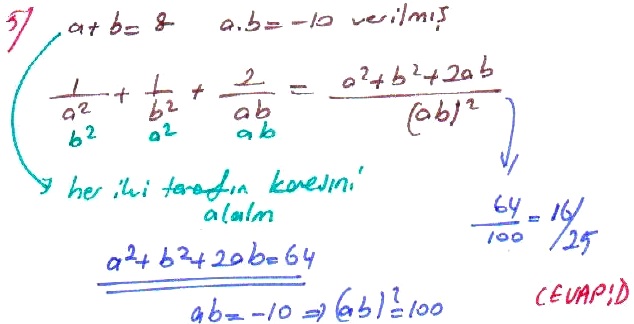 5) a+b=8 a.b=-10 verilmiş
1/a² + 1/b² + 2/ab = a²+b²+2ab/(ab)²
b² a² ab
her iki tarafın karesini
alalım
64/100 = 16/25
a²+b²+2ab=64
ab=-10 ⇒ (ab)²=100
CEVAP:D